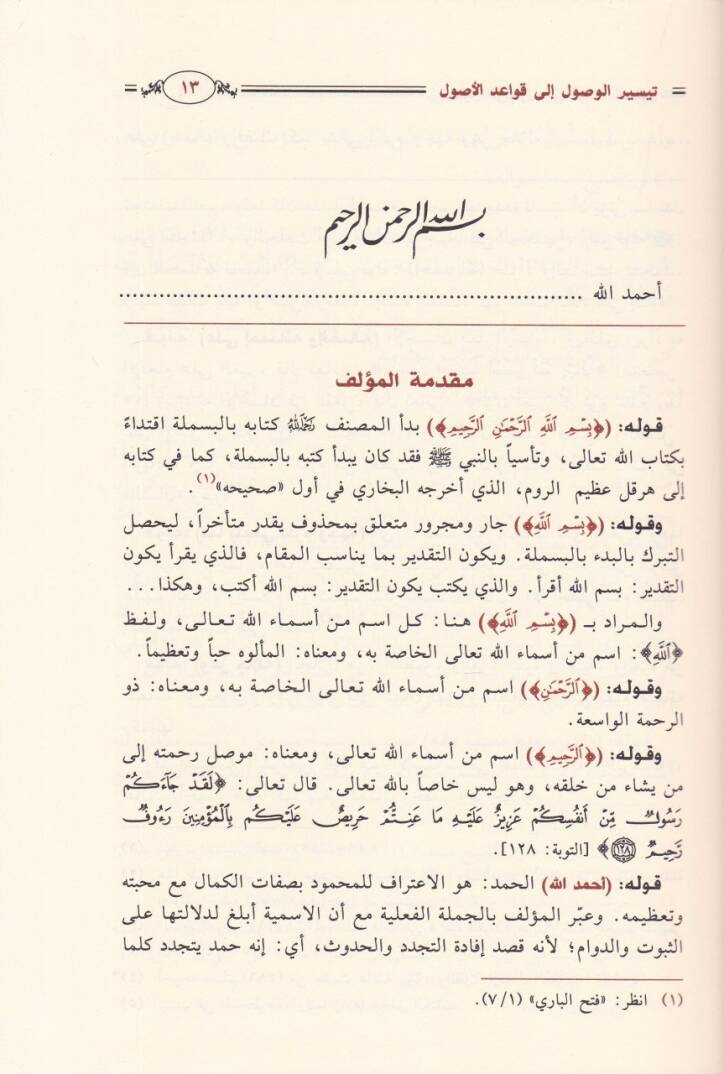 = تيسير الوصول إلى قواعد الأصول ١٣ =
بسم الله الرحمن الرحيم
أحمد الله ......................................................................
مقدمة المؤلف
قوله: (﴿بِسْمِ ٱللَّهِ ٱلرَّحْمَٰنِ ٱلرَّحِيمِ﴾) بدأ المصنف رَحِمَهُ اللَّهُ كتابه بالبسملة اقتداءً
بكتاب الله تعالى، وتأسياً بالنبي ﷺ فقد كان يبدأ كتبه بالبسملة، كما في كتابه
إلى هرقل عظيم الروم، الذي أخرجه البخاري في أول «صحيحه»(١).
وقوله: (﴿بِسْمِ ٱللَّهِ﴾) جار ومجرور متعلق بمحذوف يقدر متأخراً، ليحصل
التبرك بالبدء بالبسملة. ويكون التقدير بما يناسب المقام، فالذي يقرأ يكون
التقدير: بسم الله أقرأ. والذي يكتب يكون التقدير: بسم الله أكتب، وهكذا...
والمراد بـ (﴿بِسْمِ ٱللَّهِ﴾) هنا: كل اسم من أسماء الله تعالى، ولفظ
﴿ٱللَّهِ﴾: اسم من أسماء الله تعالى الخاصة به، ومعناه: المألوه حباً وتعظيماً.
وقوله: (﴿ٱلرَّحْمَٰنِ﴾) اسم من أسماء الله تعالى الخاصة به، ومعناه: ذو
الرحمة الواسعة.
وقوله: (﴿ٱلرَّحِيمِ﴾) اسم من أسماء الله تعالى، ومعناه: موصل رحمته إلى
من يشاء من خلقه، وهو ليس خاصاً بالله تعالى. قال تعالى: ﴿لَقَدْ جَآءَكُمْ
رَسُولٌ مِّنْ أَنفُسِكُمْ عَزِيزٌ عَلَيْهِ مَا عَنِتُّمْ حَرِيصٌ عَلَيْكُم بِٱلْمُؤْمِنِينَ رَءُوفٌ
رَّحِيمٌ ١٢٨﴾ [التوبة: ١٢٨].
قوله: (أحمد الله) الحمد: هو الاعتراف للمحمود بصفات الكمال مع محبته
وتعظيمه. وعبّر المؤلف بالجملة الفعلية مع أن الاسمية أبلغ لدلالتها على
الثبوت والدوام؛ لأنه قصد إفادة التجدد والحدوث، أي: إنه حمد يتجدد كلما
(١) انظر: «فتح الباري» (٧/١).